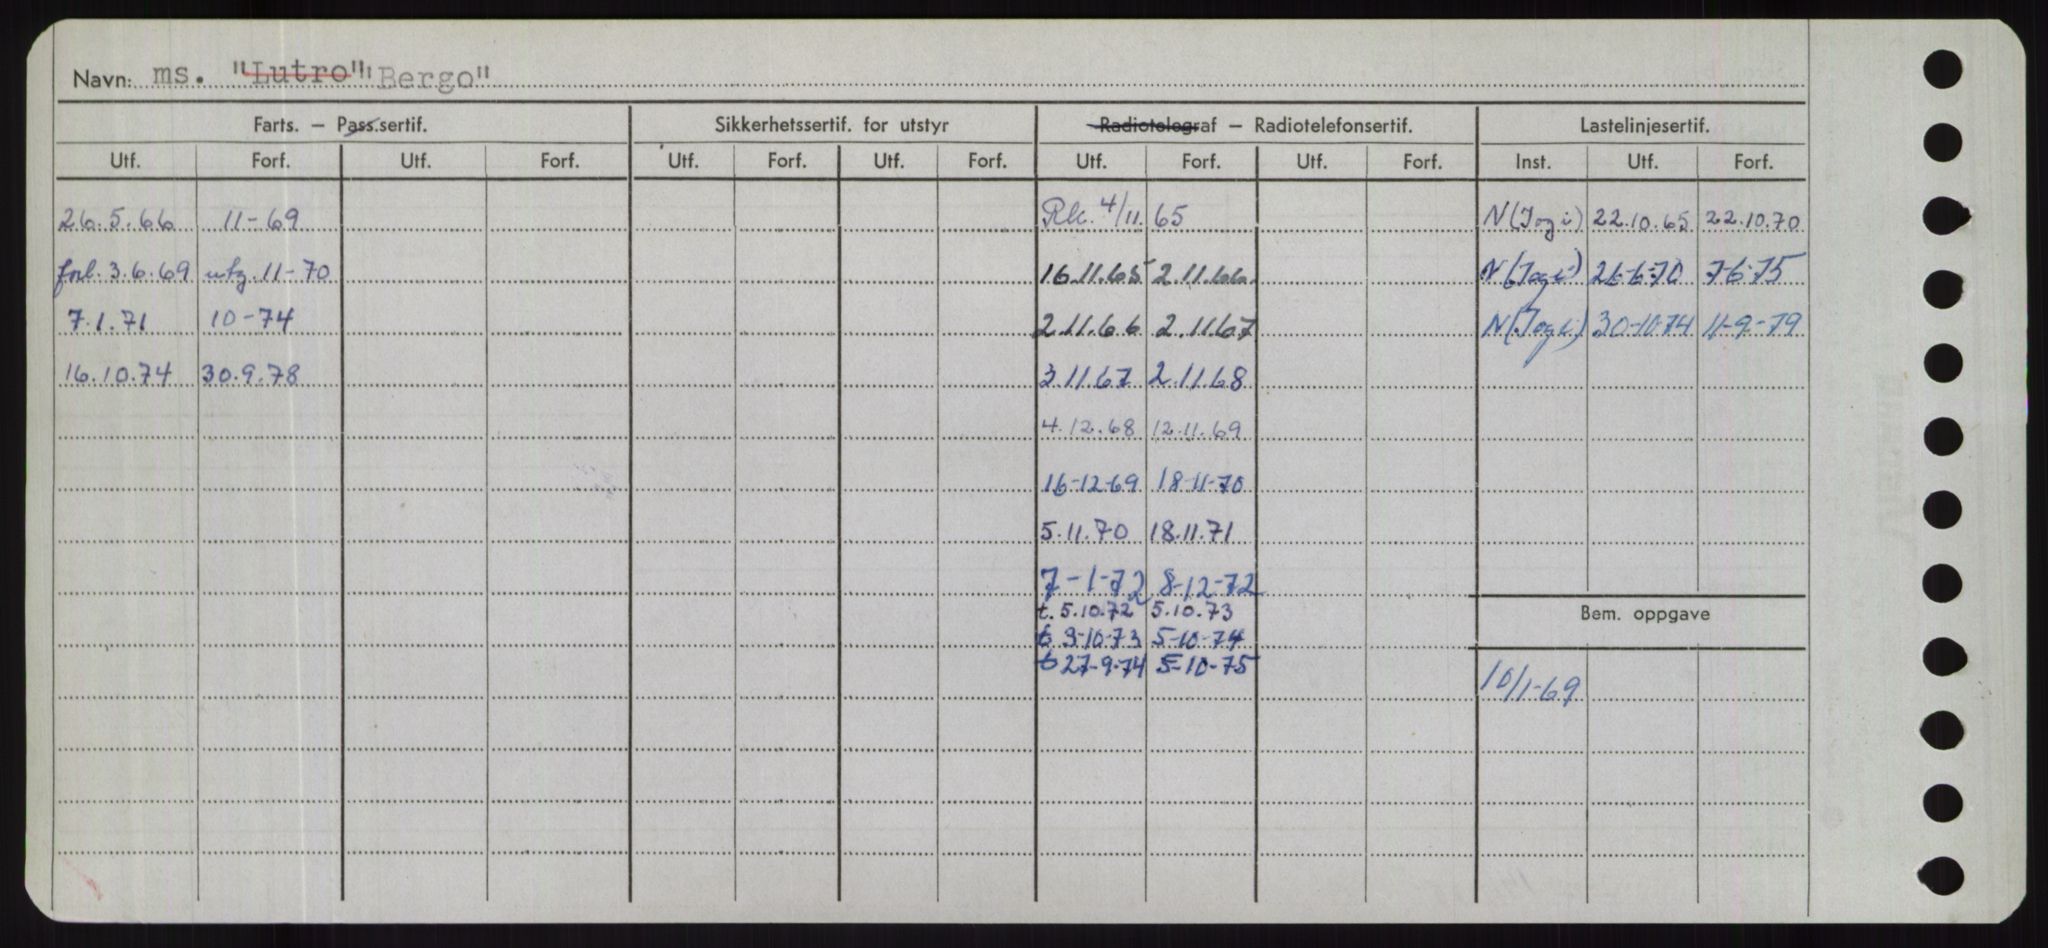 Navn: ms. "Lutro" "Bergo"
Farts. – Pass.sertif. Sikkerhetssertif. for utstyr Radiotelegraf – Radiotelefonsertif. Lastelinjesertif.
Utf. Forf. Utf. Forf. Utf. Forf. Utf. Forf. Utf. Forf. Utf. Forf. Inst. Utf. Forf.
26.5.66 11-69 Rk. 4/11. 65 N(Jogi) 22.10.65 22.10.70
forl. 3.6.69 utg. 11-70 16.11.65 2.11.66. N(Jogi) 26-6-70 7-6-75
7.1.71 10-74 2.11.66 2.11.67 N(Jogi) 30-10-74 11-9-79
16.10.74 30.9.78 3.11.67 2.11.68
4.12.68 12.11.69
16-12-69 18-11-70
5.11.70 18.11.71
7-1-72 8-12-72
t. 5.10.72 5.10.73
Bem. oppgave
t 3-10-73 5-10-74
t 27-9-74 5-10-75
10/1-69